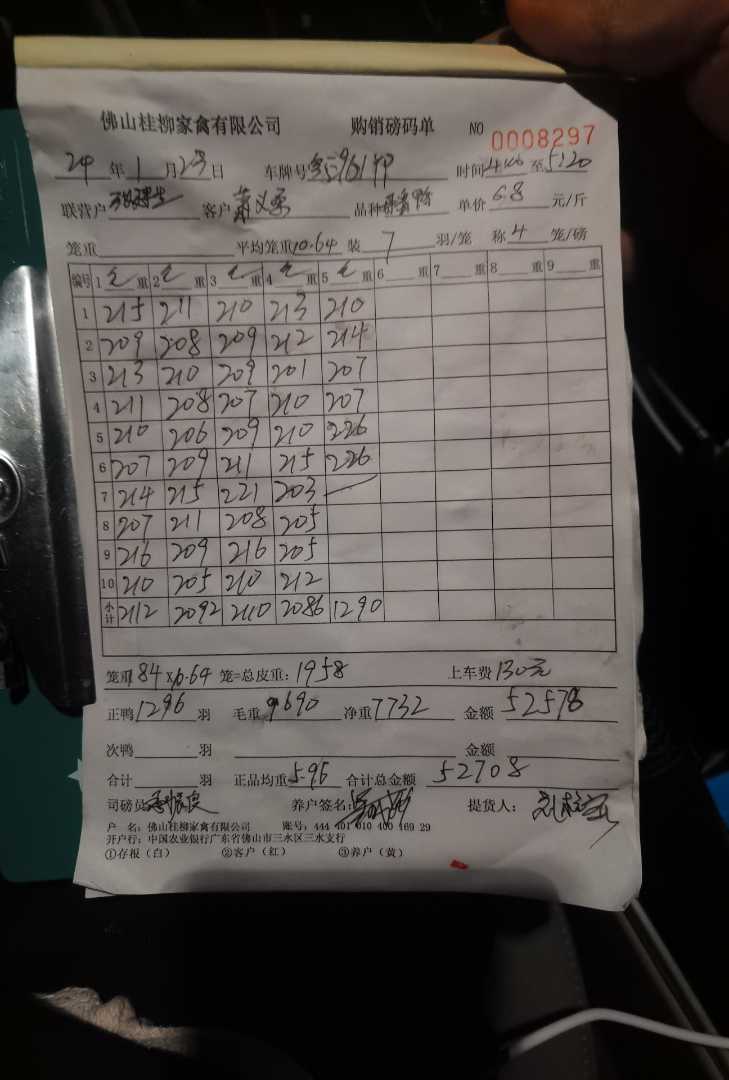 佛山桂柳家禽有限公司 购销磅码单 NO 0008297
24 年 1 月 25 日 车牌号 时间 至 5:20
联营户 客户 品种 单价 6.8 元/斤
笼重 平均笼重 10.64 装 7 羽/笼 称 4 笼/磅
编号 1 毛 重 2 毛 重 3 毛 重 4 毛 重 5 毛 重 6 重 7 重 8 重 9 重
1 215 211 210 213 210
2 209 208 209 212 214
3 213 210 209 201 207
4 211 208 207 210 207
5 210 206 209 210 226
6 207 209 211 215 226
7 214 215 221 203
8 207 211 208 205
9 216 209 216 205
10 210 205 210 212
小计 2112 2092 2110 2086 1290
笼重 184 x10.64 笼=总皮重: 1958 上车费 130元
正鸭 1296 羽 毛重 9690 净重 7732 金额 52578
次鸭 羽 金额
合计 羽 正品均重 5.96 合计总金额 52708
司磅员 养户签名: 提货人:
户 名: 佛山桂柳家禽有限公司 账号: 444 401 010 400 169 29
开户行: 中国农业银行广东省佛山市三水区三水支行
①存根(白) ②客户(红) ③养户(黄)